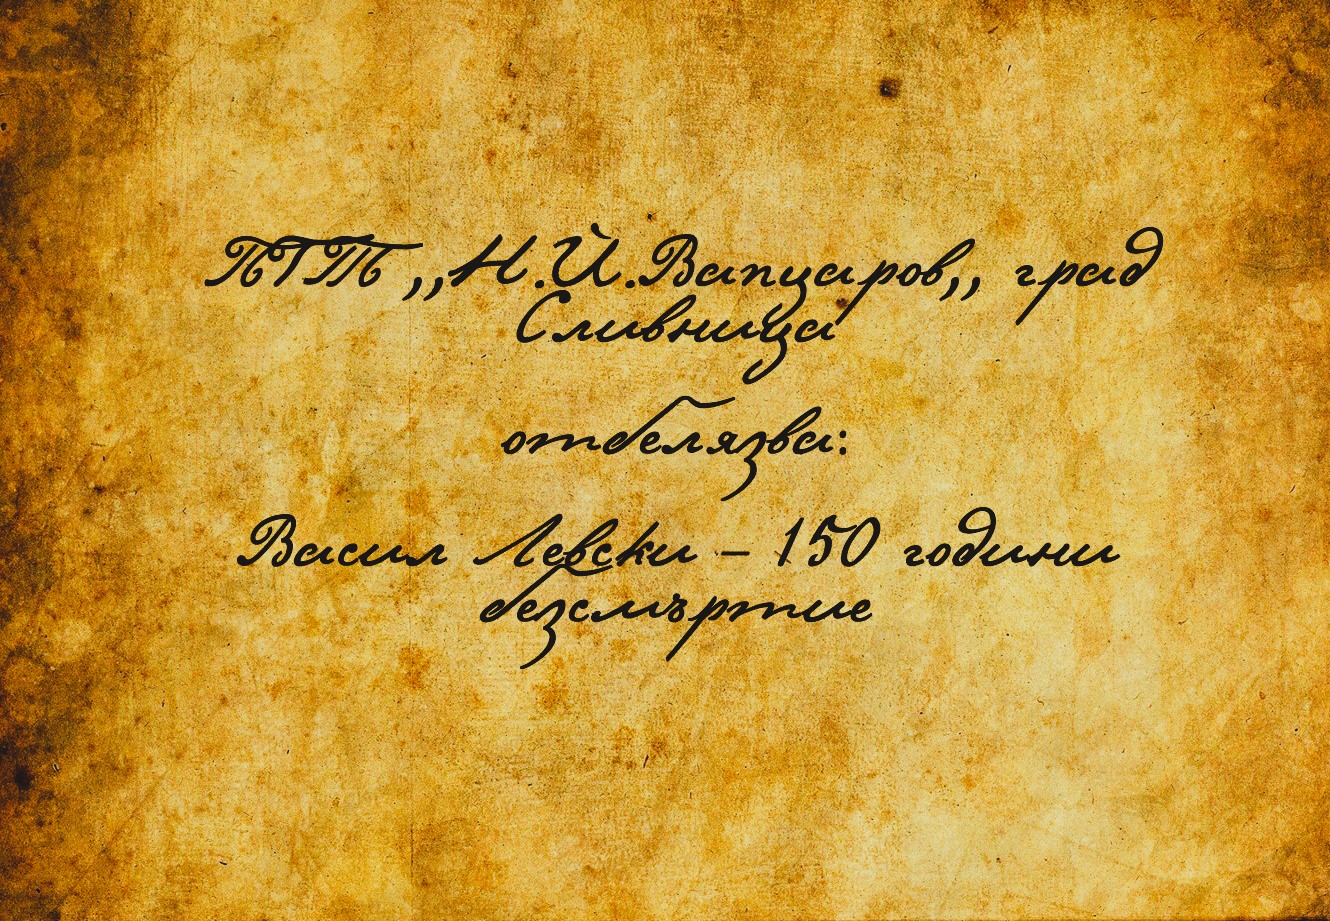 ПГТ ,,Н.Й.Вапцаров,, град
Сливница
отбелязва:
Васил Левски – 150 години
безсмъртие